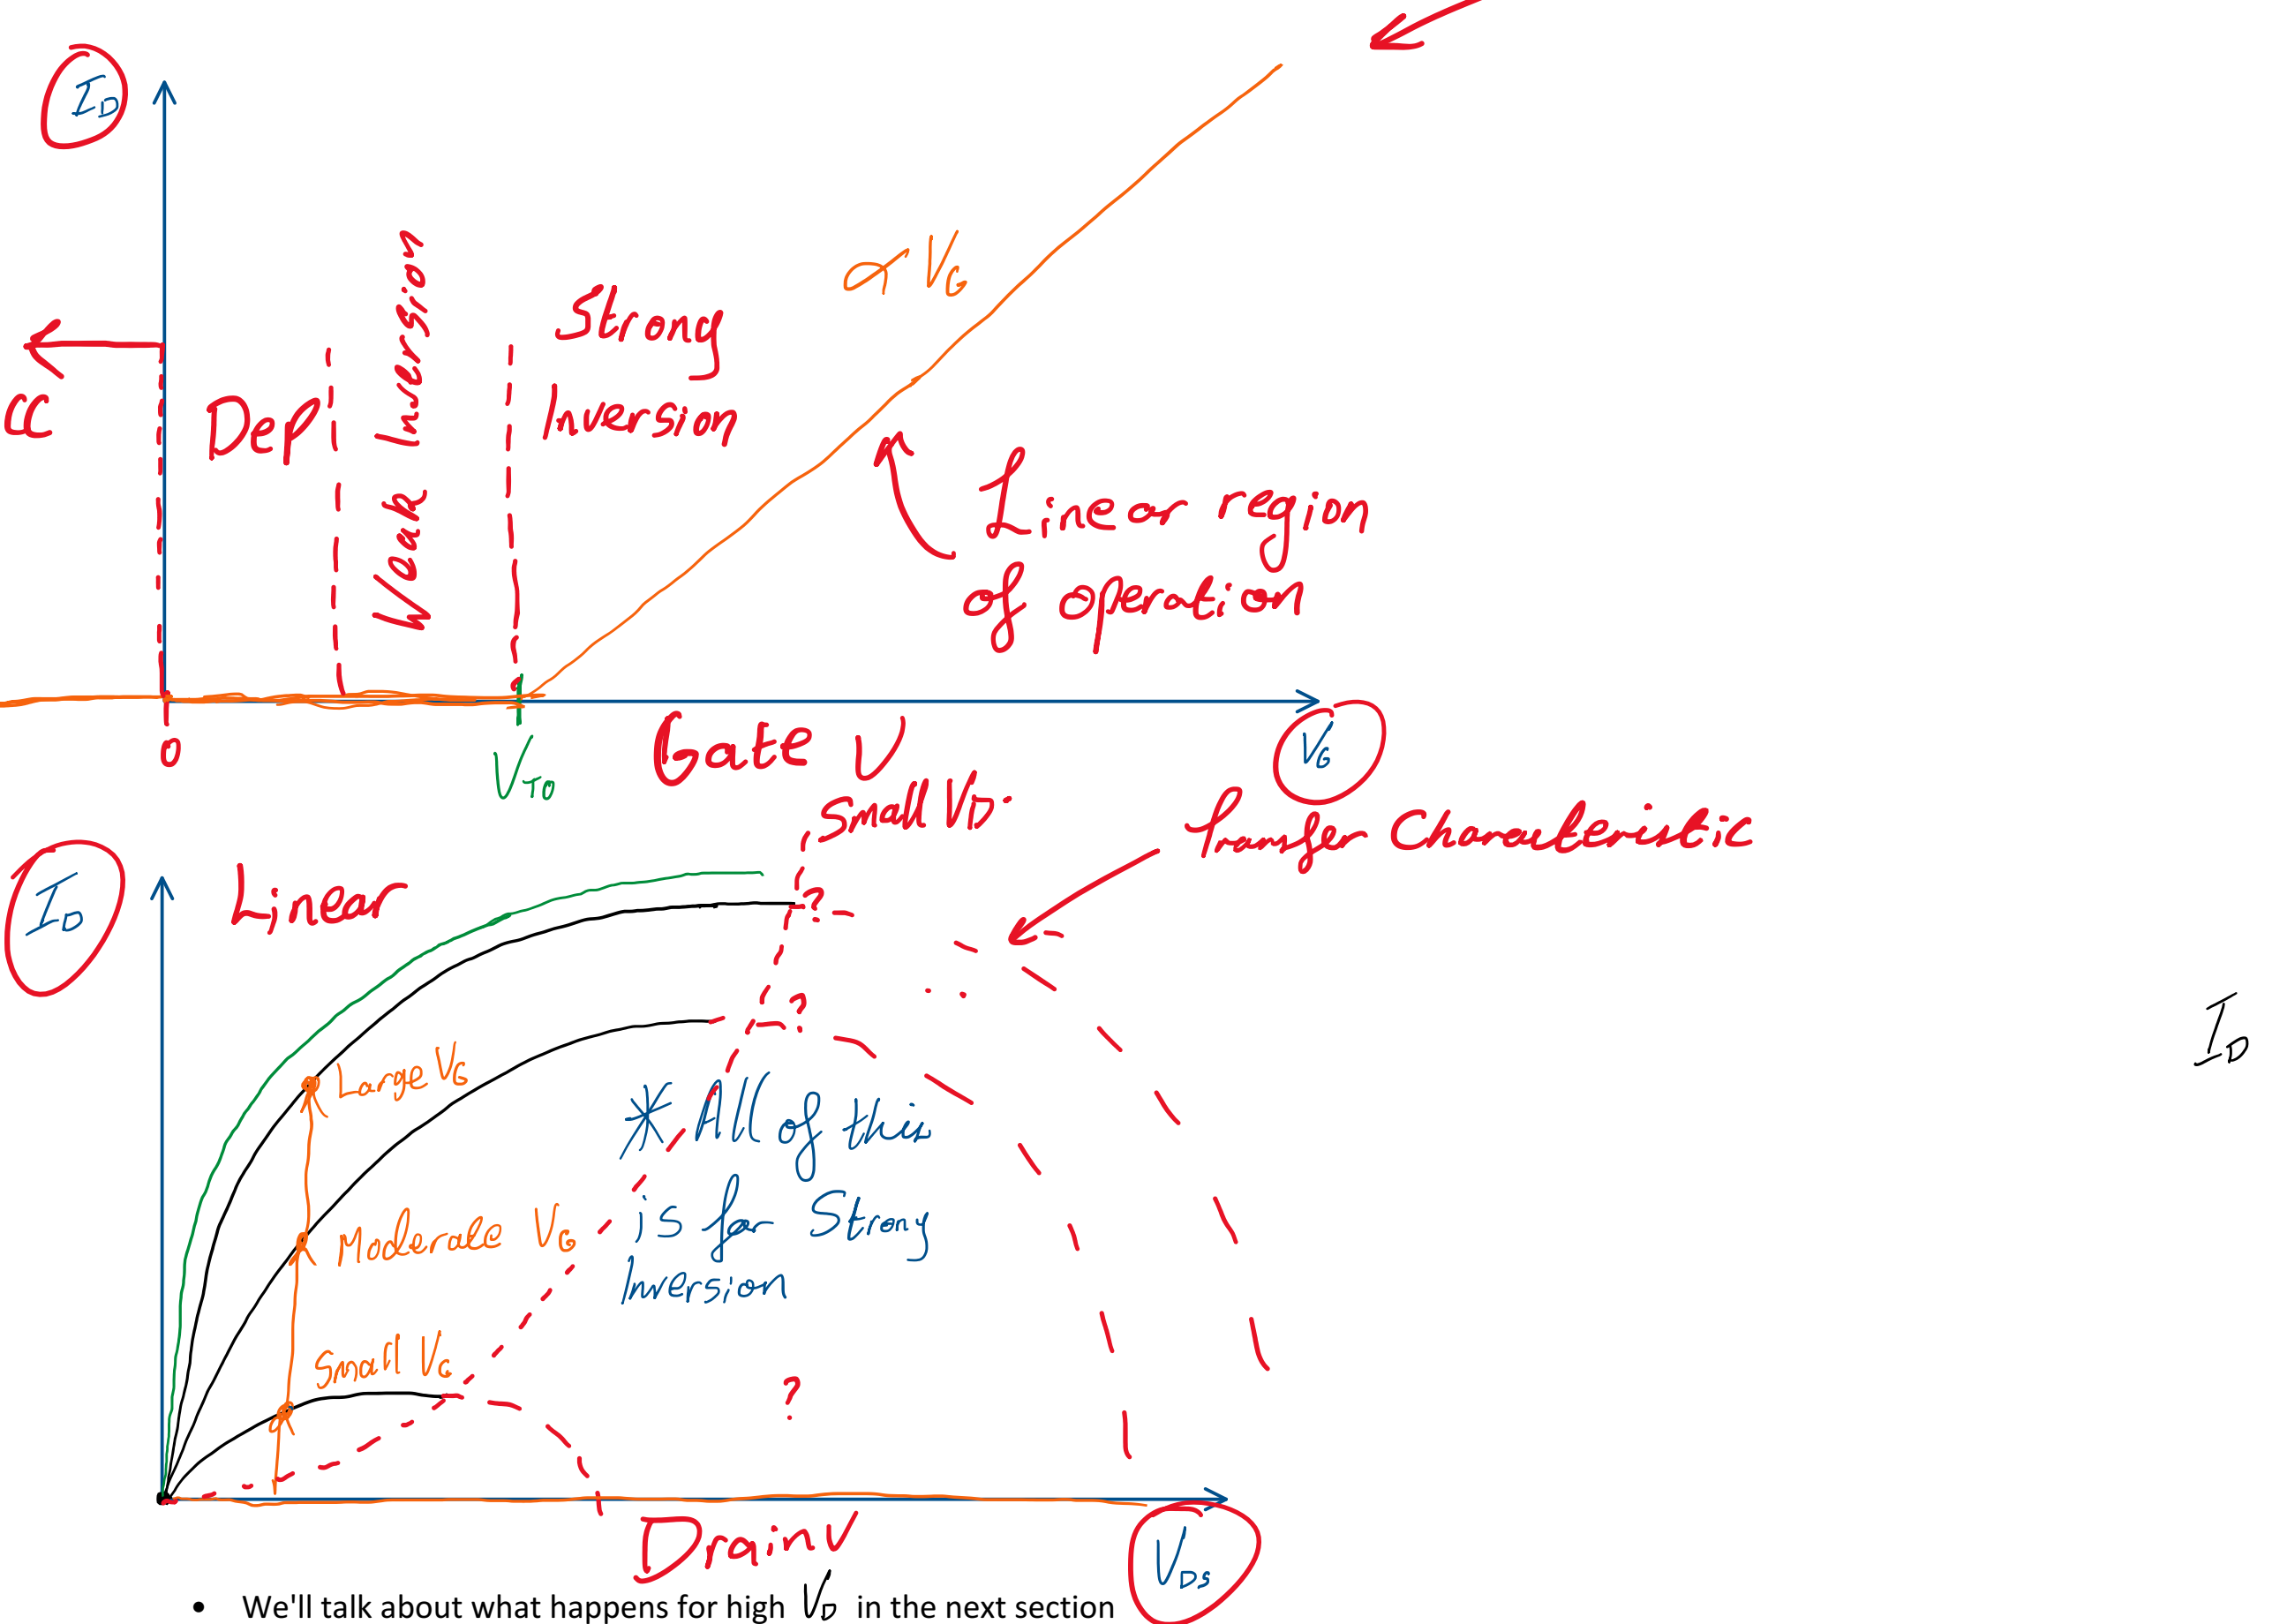 I_D
∝ V_G
Strong
Inversion
Weak Inversion
CC
Dep
Linear region
of operation
0
V_T0
Gate V
V_G
Small V_D.
Transfer Characteristic
I_D
Linear
?
?
I_D
Large V_G
* All of this
is for Strong
Inversion
Moderate V_G
Small V_G
?
Drain V
V_DS
• We'll talk about what happens for high V_D in the next section